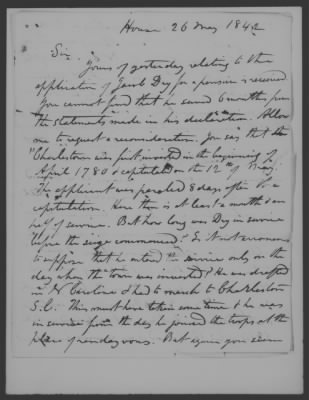 House 26 May 1842
Sir
Yours of yesterday relating to the
application of Jacob Dry for a pension is received
You cannot find that he served 6 months from
the statements made in his declaration. Allow
me to request a reconsideration. You say that the
"Charleston was first invested in the beginning of
April 1780 & capitulated on the 12th of May.
The applicant was paroled 8 days after the
capitulation. Here then is at least a month & an
half of service. But how long was Dry in service
before the siege commenced? Is it not erroneous
to suppose that he entered the service only on the
day when the town was invested? He was drafted
in N Carolina & had to march to Charleston
S.C. This must have taken some time & he was
in service from the day he joined the troops at the
place of rendezvous. But again you seem